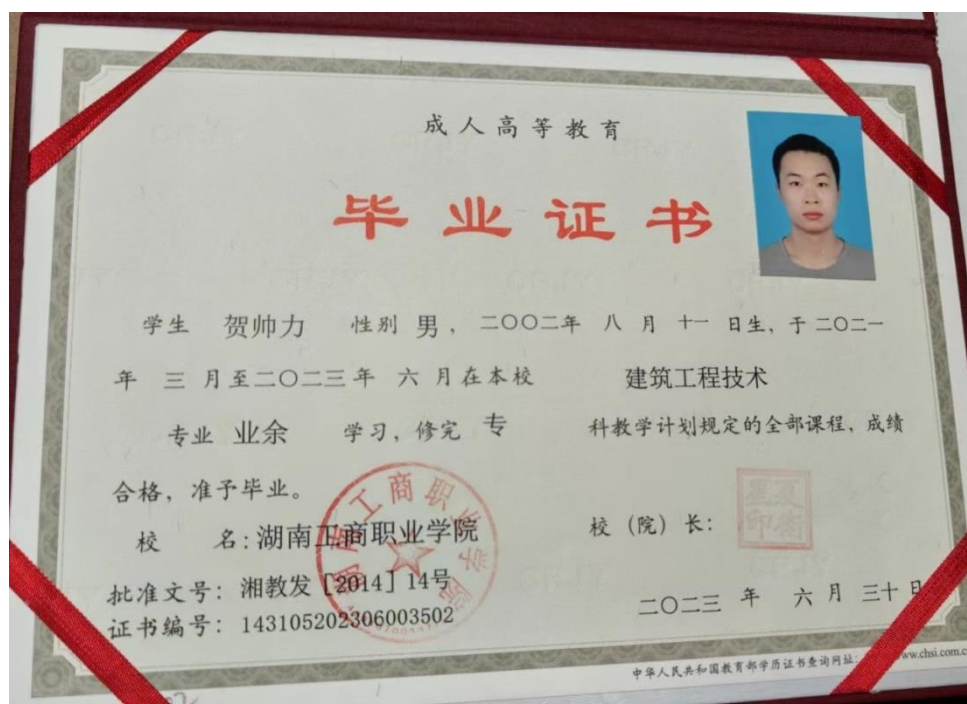 成人高等教育
毕业证书
学生 贺帅力 性别 男，二〇〇二年 八 月 十一 日生，于二〇二一
年 三 月至二〇二三年 六 月在本校 建筑工程技术
专业 业余 学习，修完 专 科教学计划规定的全部课程，成绩
合格，准予毕业。
校 名：湖南工商职业学院 校（院）长：
批准文号：湘教发〔2014〕14号
证书编号：143105202306003502
二〇二三 年 六 月 三十 日
湖南工商职业学院
中华人民共和国教育部学历证书查询网址：